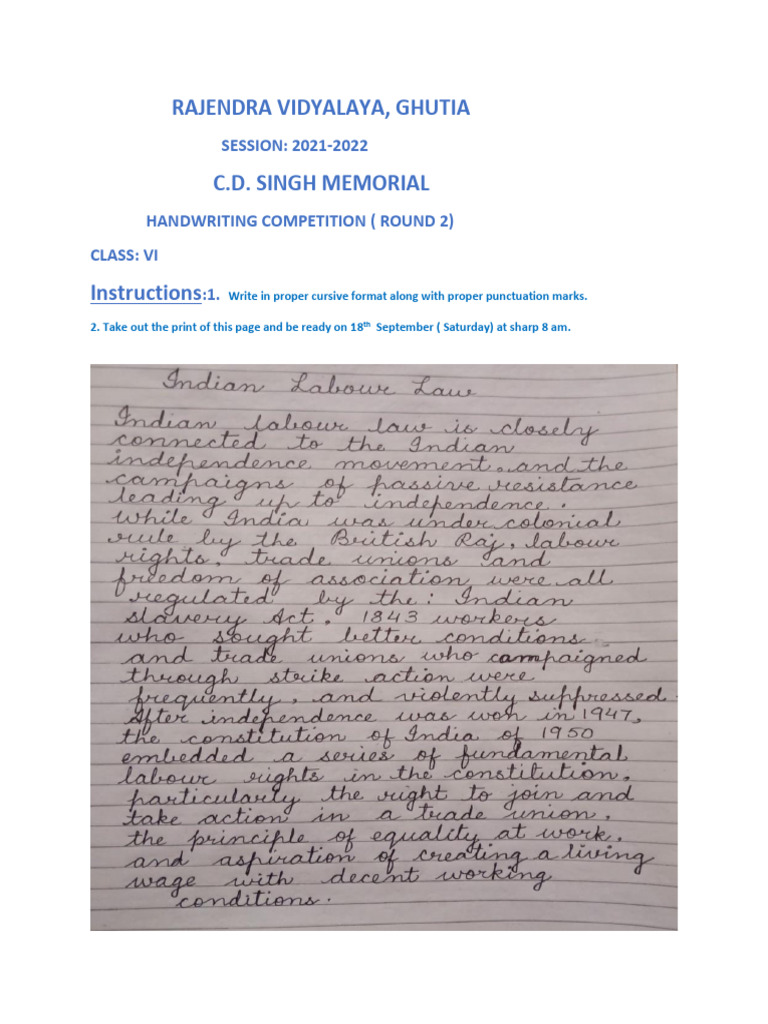 RAJENDRA VIDYALAYA, GHUTIA
SESSION: 2021-2022
C.D. SINGH MEMORIAL
HANDWRITING COMPETITION ( ROUND 2)
CLASS: VI
Instructions:1. Write in proper cursive format along with proper punctuation marks.
2. Take out the print of this page and be ready on 18th September ( Saturday) at sharp 8 am.
Indian Labour Law
Indian labour law is closely
connected to the Indian
independence movement. and the
campaigns of passive resistance
leading up to independence.
While India was under colonial
rule by the British Raj, labour
rights, trade unions and
freedom of association were all
regulated by the: Indian
slavery Act, 1843 workers
who sought better conditions
and trade unions who campaigned
through strike action were
frequently, and violently suppressed
After independence was won in 1947,
the constitution of India of 1950
embedded a series of fundamental
labour rights in the constitution,
particularly the right to join and
take action in a trade union,
the principle of equality at work,
and aspiration of creating a living
wage with decent working
conditions.